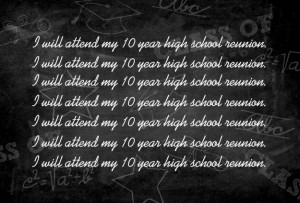 I will attend my 10 year high school reunion.
I will attend my 10 year high school reunion.
I will attend my 10 year high school reunion.
I will attend my 10 year high school reunion.
I will attend my 10 year high school reunion.
I will attend my 10 year high school reunion.
I will attend my 10 year high school reunion.